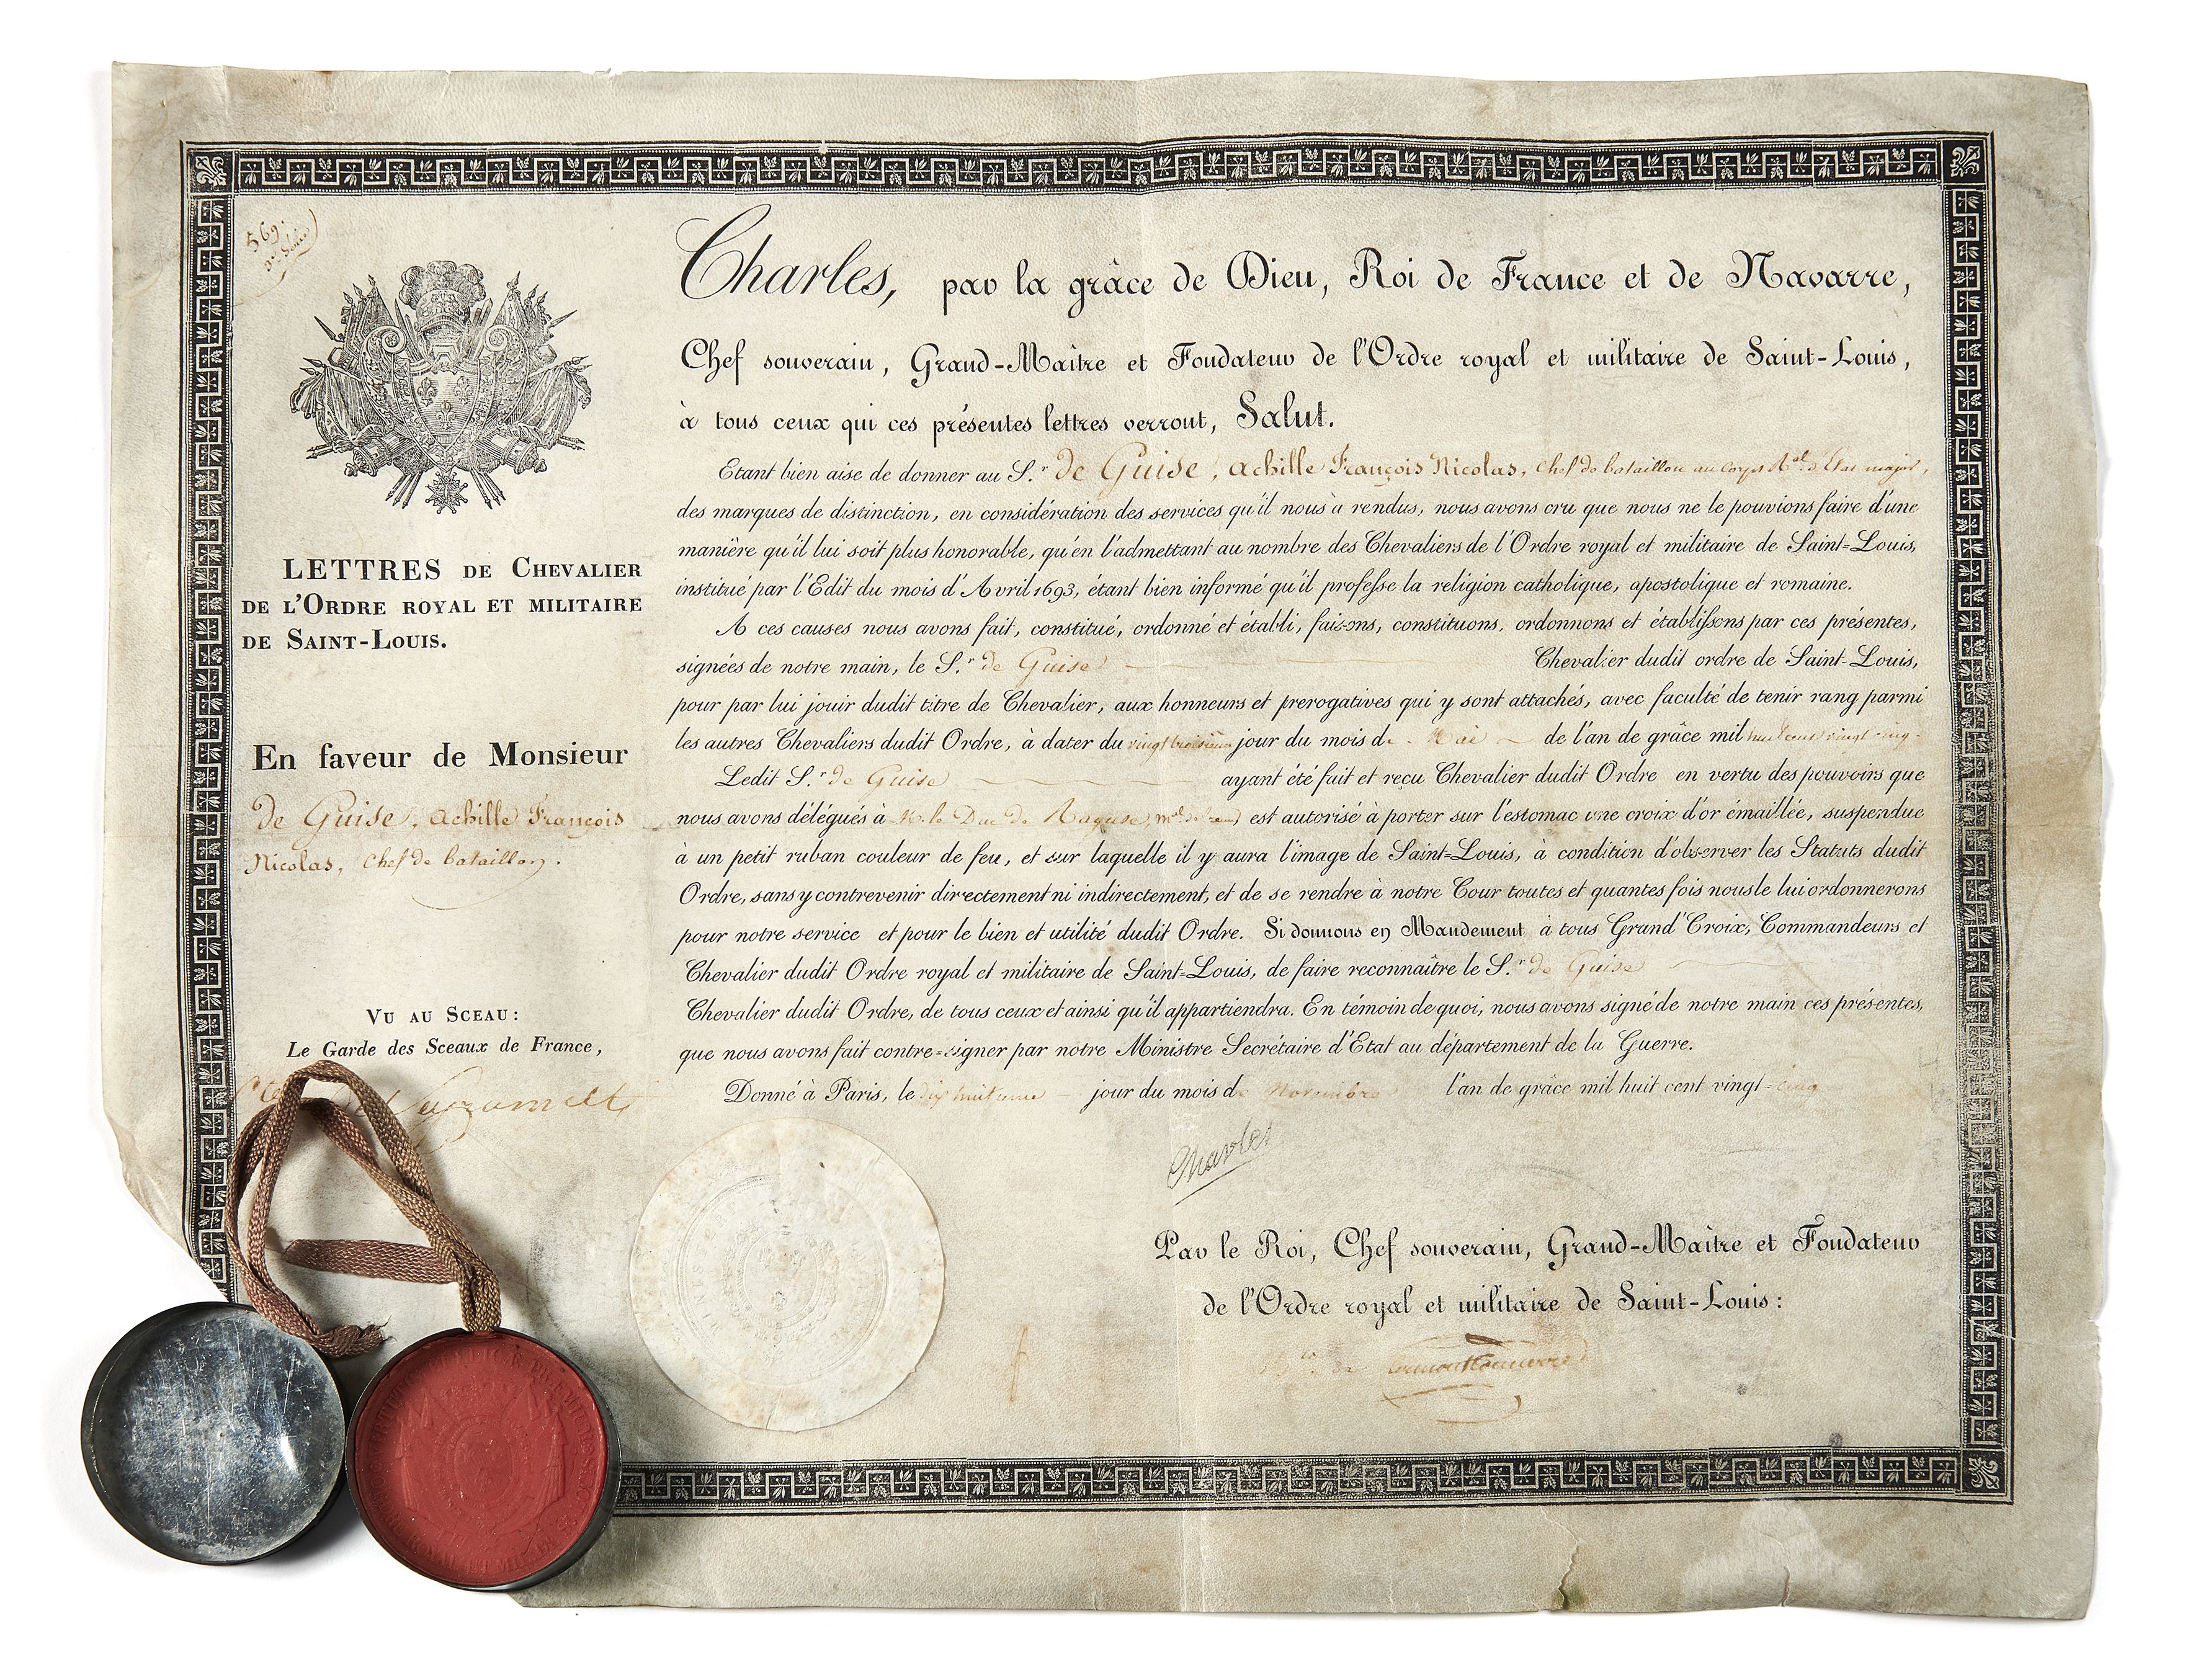 569.
LETTRES DE CHEVALIER
DE L'ORDRE ROYAL ET MILITAIRE
DE SAINT-LOUIS.
En faveur de Monsieur
de Guise, Achille François
Nicolas, Chef de bataillon.
VU AU SCEAU:
Le Garde des Sceaux de France,
Charles, par la grâce de Dieu, Roi de France et de Navarre,
Chef souverain, Grand-Maître et Fondateur de l'Ordre royal et militaire de Saint-Louis,
à tous ceux qui ces présentes lettres verront, Salut.
Etant bien aise de donner au S.r de Guise, Achille François Nicolas, Chef de bataillon au Corps R.al d'Etat major,
des marques de distinction, en considération des services qu'il nous à rendus, nous avons cru que nous ne le pouvions faire d'une
manière qu'il lui soit plus honorable, qu'en l'admettant au nombre des Chevaliers de l'Ordre royal et militaire de Saint-Louis,
institué par l'Edit du mois d'Avril 1693, étant bien informé qu'il professe la religion catholique, apostolique et romaine.
A ces causes nous avons fait, constitué, ordonné et établi, faisons, constituons, ordonnons et établissons par ces présentes,
signées de notre main, le S.r de Guise Chevalier dudit ordre de Saint-Louis,
pour par lui jouir dudit titre de Chevalier, aux honneurs et prerogatives qui y sont attachés, avec faculté de tenir rang parmi
les autres Chevaliers dudit Ordre, à dater du vingt troisième jour du mois de Mai de l'an de grâce mil huit cent vingt-cinq.
Ledit S.r de Guise ayant été fait et reçu Chevalier dudit Ordre en vertu des pouvoirs que
nous avons délégués à M. le Duc de Raguse, est autorisé à porter sur l'estomac une croix d'or émaillée, suspendue
à un petit ruban couleur de feu, et sur laquelle il y aura l'image de Saint-Louis, à condition d'observer les Statuts dudit
Ordre, sans y contrevenir directement ni indirectement, et de se rendre à notre Cour toutes et quantes fois nous le lui ordonnerons
pour notre service et pour le bien et utilité dudit Ordre. Si donnons en Mandement à tous Grand'Croix, Commandeurs et
Chevalier dudit Ordre royal et militaire de Saint-Louis, de faire reconnaître le S.r de Guise
Chevalier dudit Ordre, de tous ceux et ainsi qu'il appartiendra. En témoin de quoi, nous avons signé de notre main ces présentes,
que nous avons fait contre-signer par notre Ministre Secrétaire d'Etat au département de la Guerre.
Donné à Paris, le dix huitième jour du mois de Novembre l'an de grâce mil huit cent vingt-cinq
Charles
Par le Roi, Chef souverain, Grand-Maître et Fondateur
de l'Ordre royal et militaire de Saint-Louis: